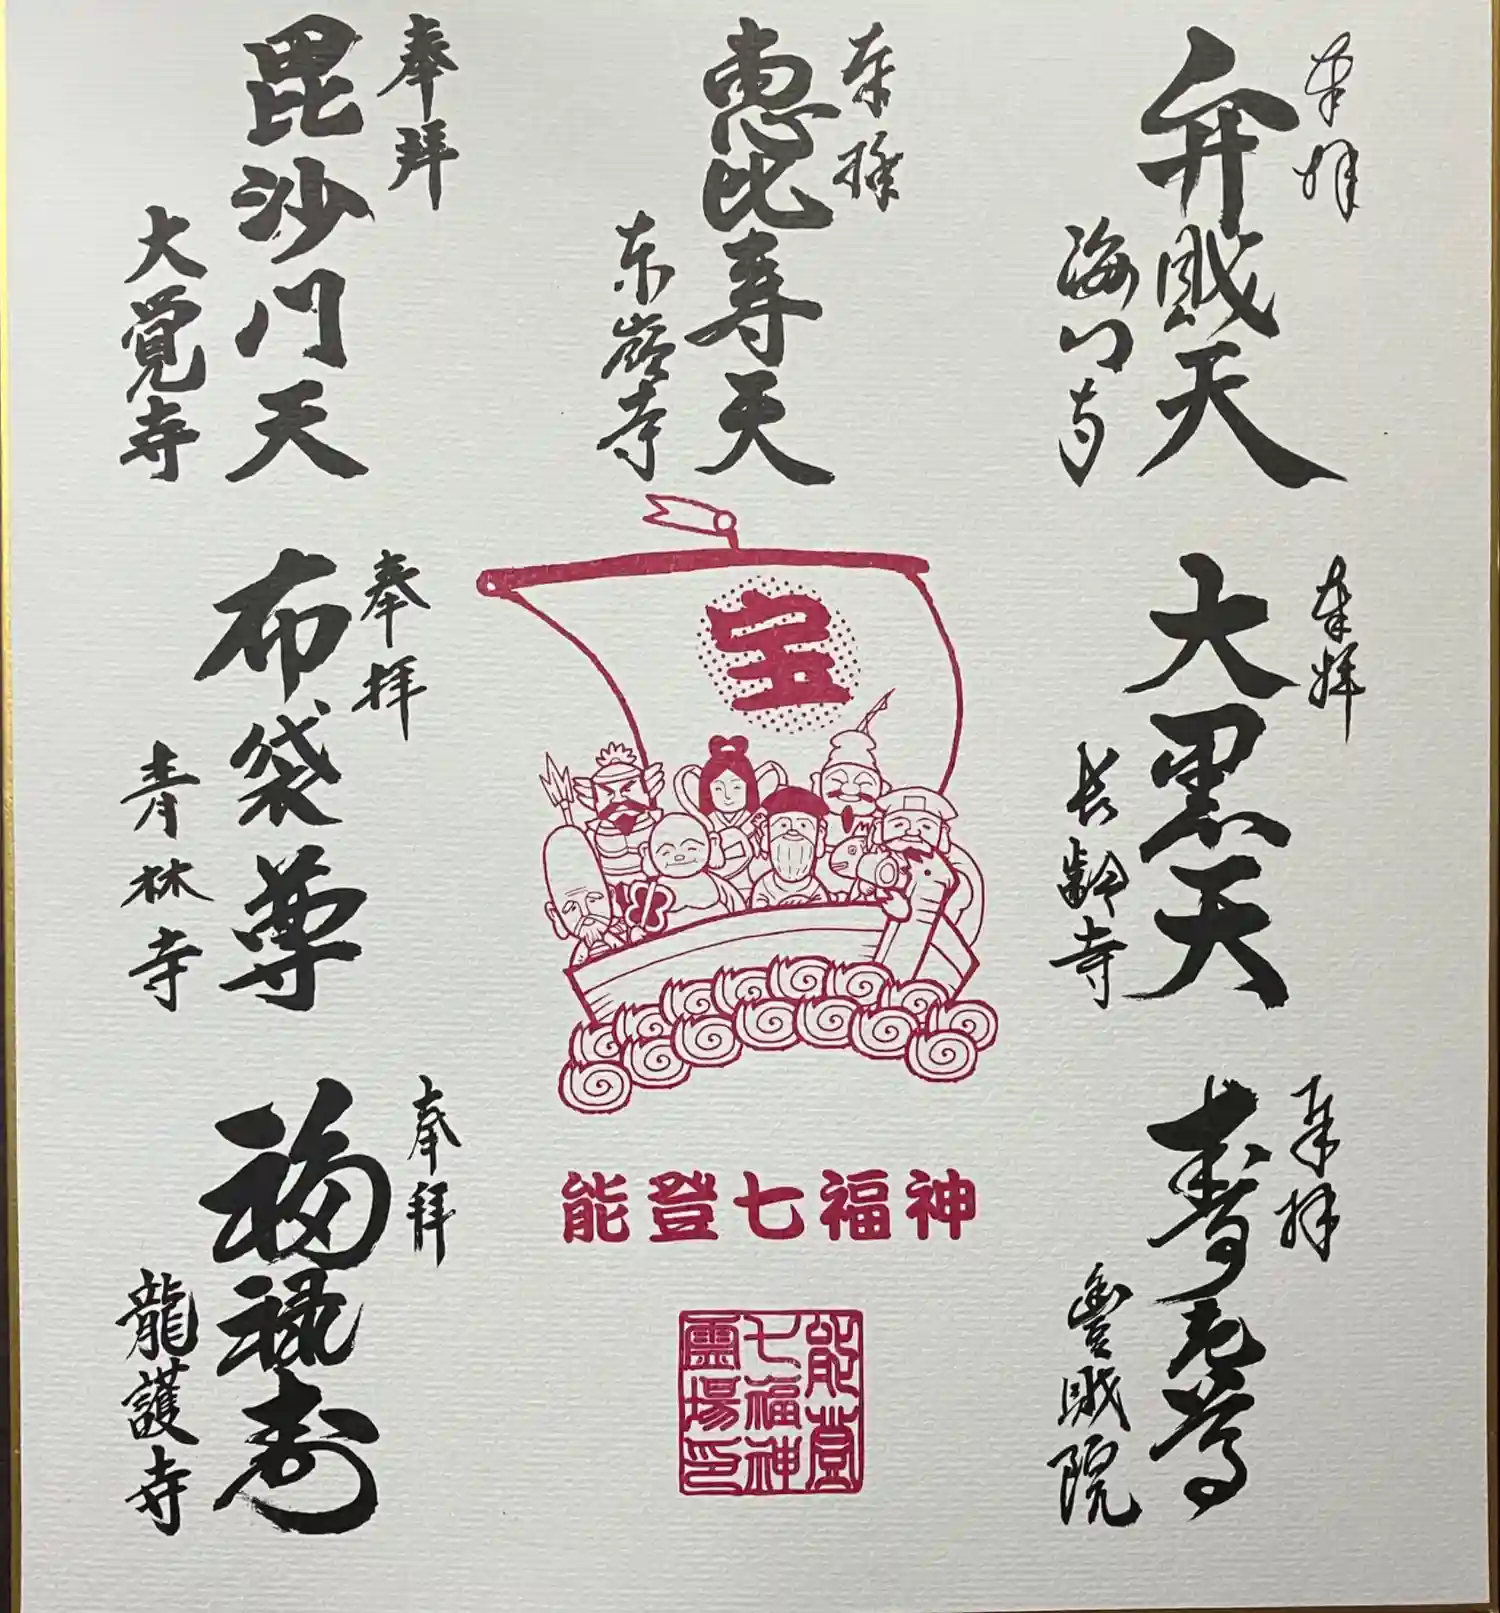 奉拝
弁財天
海門寺
奉拝
恵比寿天
东嶺寺
奉拜
毘沙门天
大覚寺
奉拝
大黒天
长齢寺
宝
奉拝
布袋尊
青林寺
奉拝
寿老尊
豊財院
奉拜
福禄寿
龍護寺
能登七福神
能登
七福神
霊場印